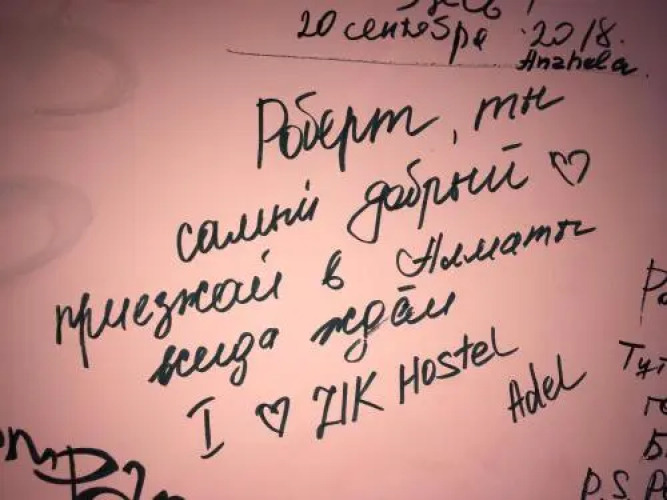 20 сентября 2018.
Anzhela.
Роберт, ты
самый добрый ♡
приезжай в Алматы
всегда ждём
I ♡ ZIK Hostel
Adel
Тут
P.S.